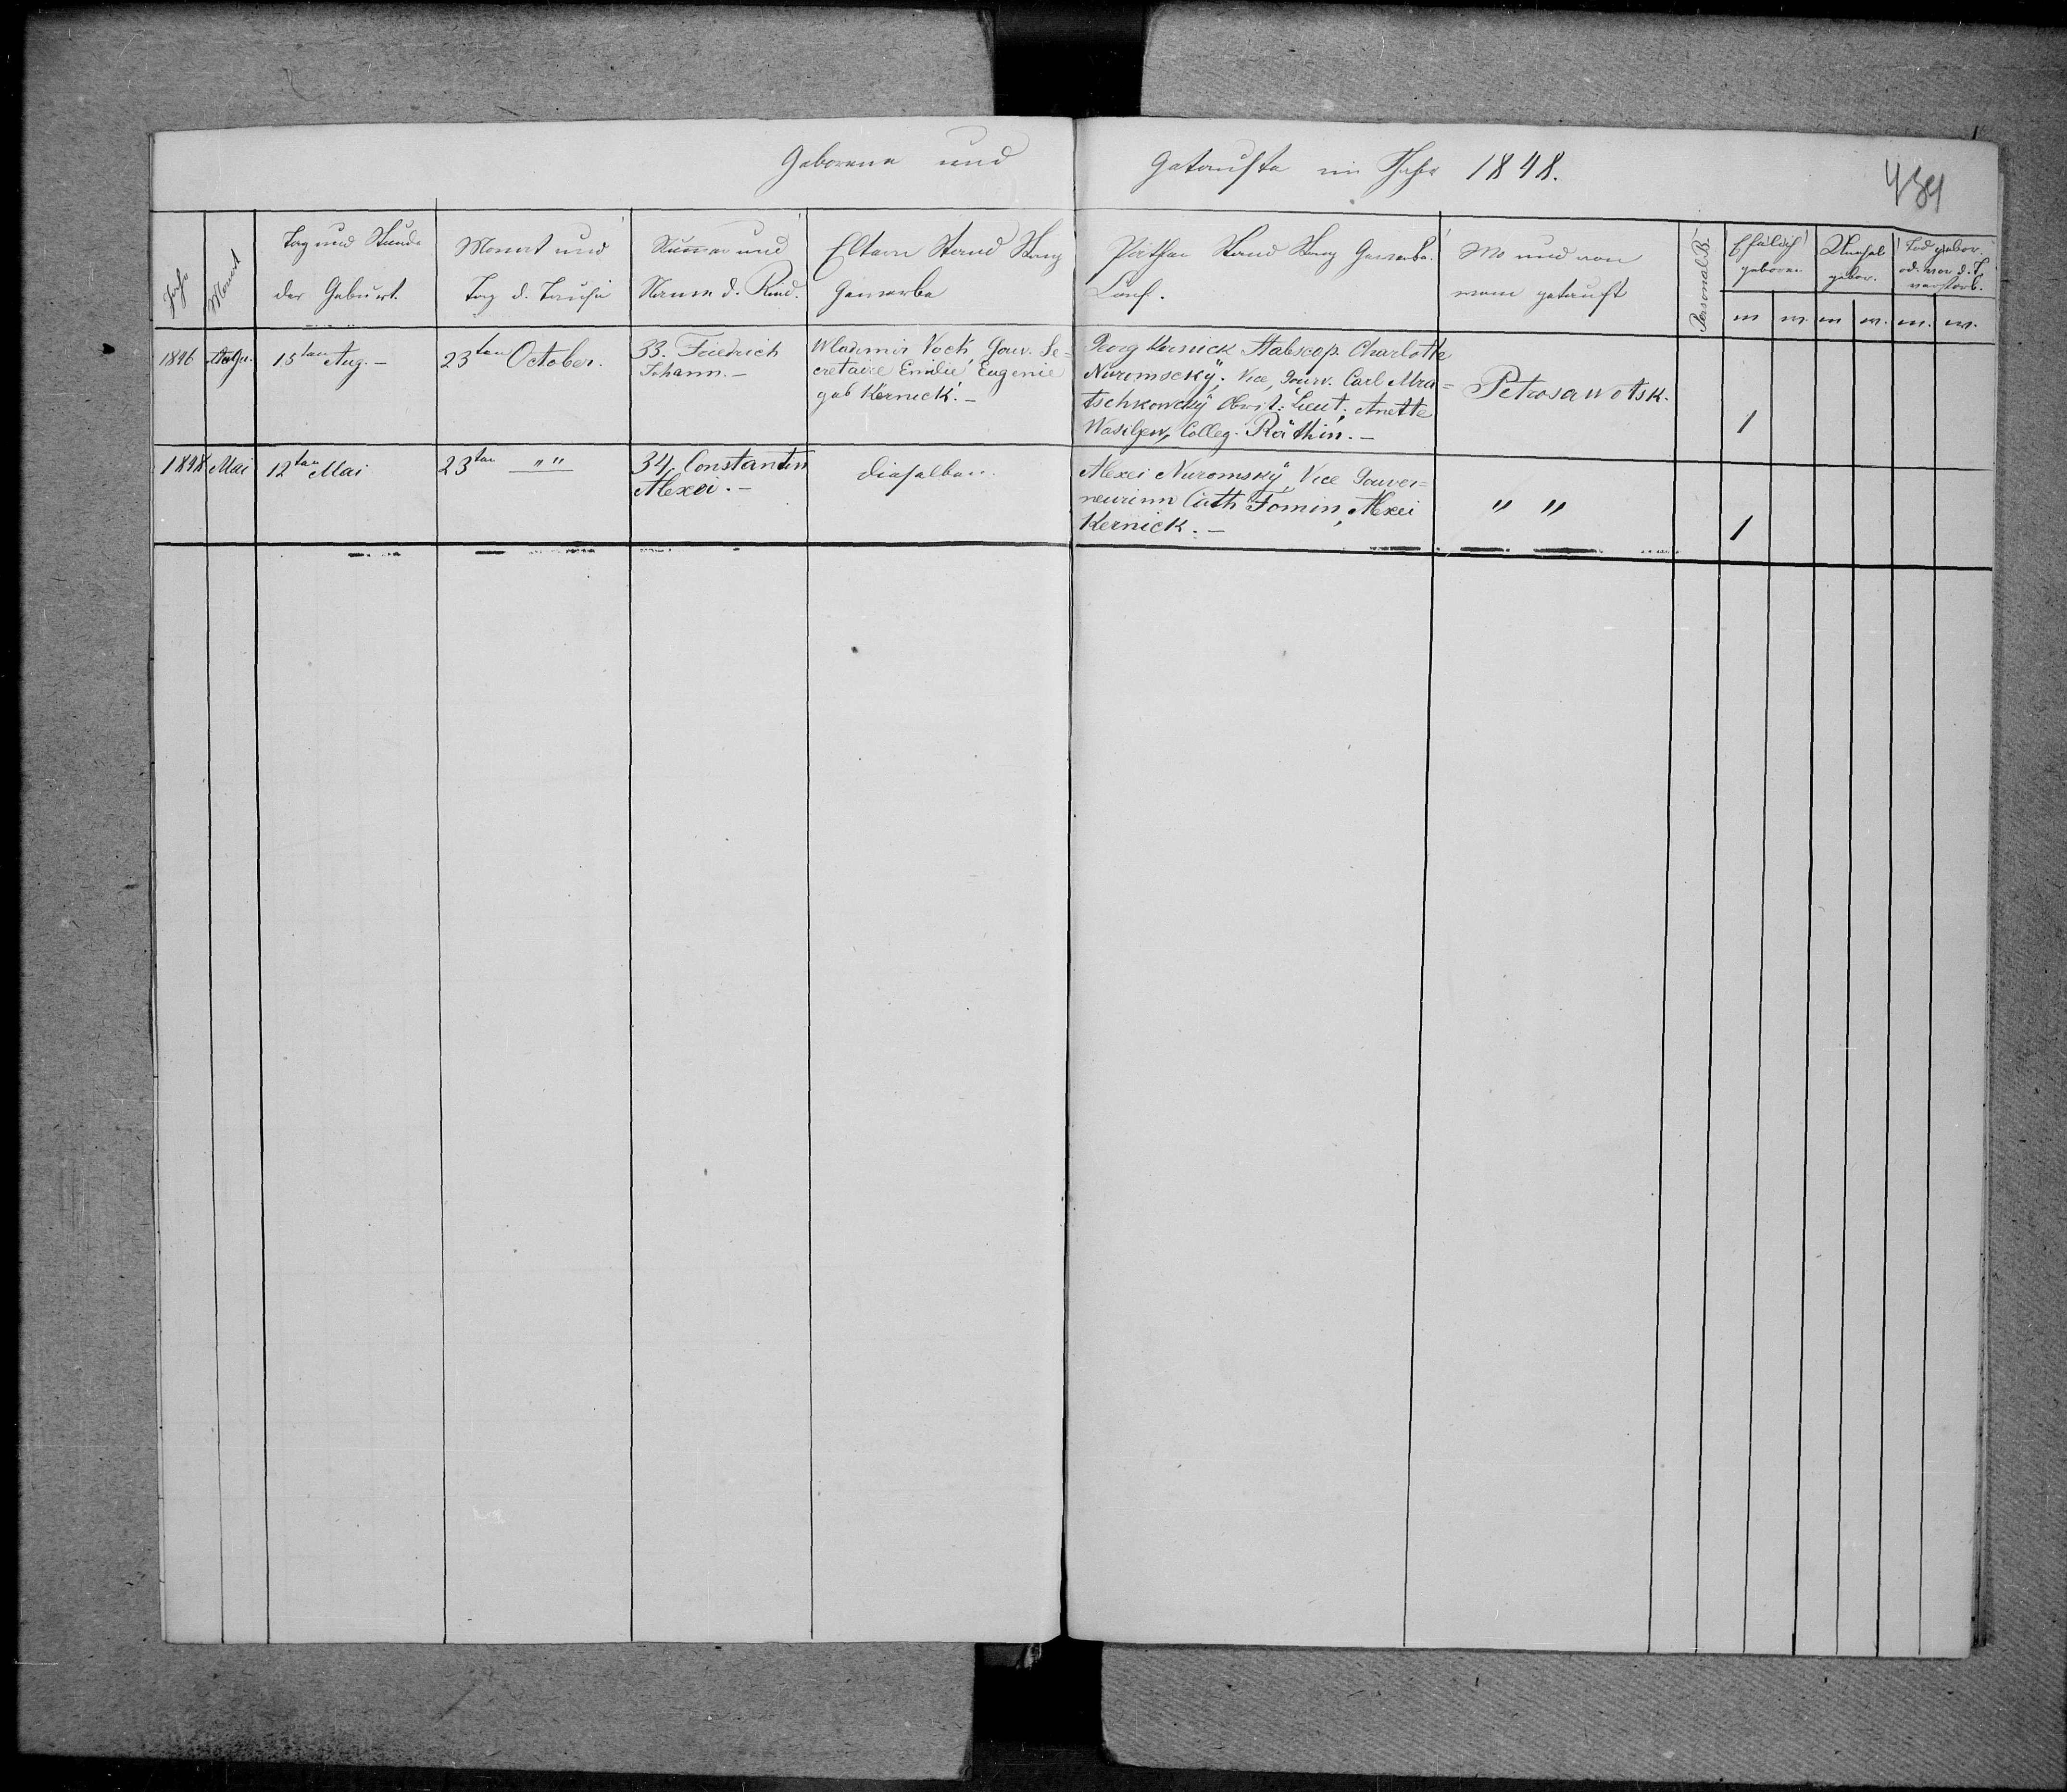 Geborene und Getaufte im Jahr 1848.
439
Jahr
Monat
Tag und Stunde
der Geburt.
Monat und
Tag d. Taufe
Num̅er und
Name d. Kind.
Eltern Stand Rang
Gewerbe
Pathen Stand Rang Gewerbe.
Conf.
Wo und von
wem getauft
Personal B.
Ehelich
geboren
Unehel
gebor.
Tod gebor.
od. vor d. T.
verstorb.
m w. m w. m. w.
1846
15ten Aug. –
23ten October.
33. Friedrich
Johann. –
Wladimir Koch, Gouv. Se=
cretaire Emilie Eugenie
geb Kernick. –
Georg Kernick Stabscap. Charlotte
Nuromscky, Vice, Gouv. Carl Mra=
tschkowsky Obrist: Lieut; Anette
Wasiljew, Colleg. Räthin. –
Petrosawotsk.
1
1848
Mai
12ten Mai
23ten " "
34, Constantin
Alexei. –
dieselben.
Alexei Nuromsky, Vice Gouver=
neurinn Cath Fomin, Alexei
Kernick. –
" "
1